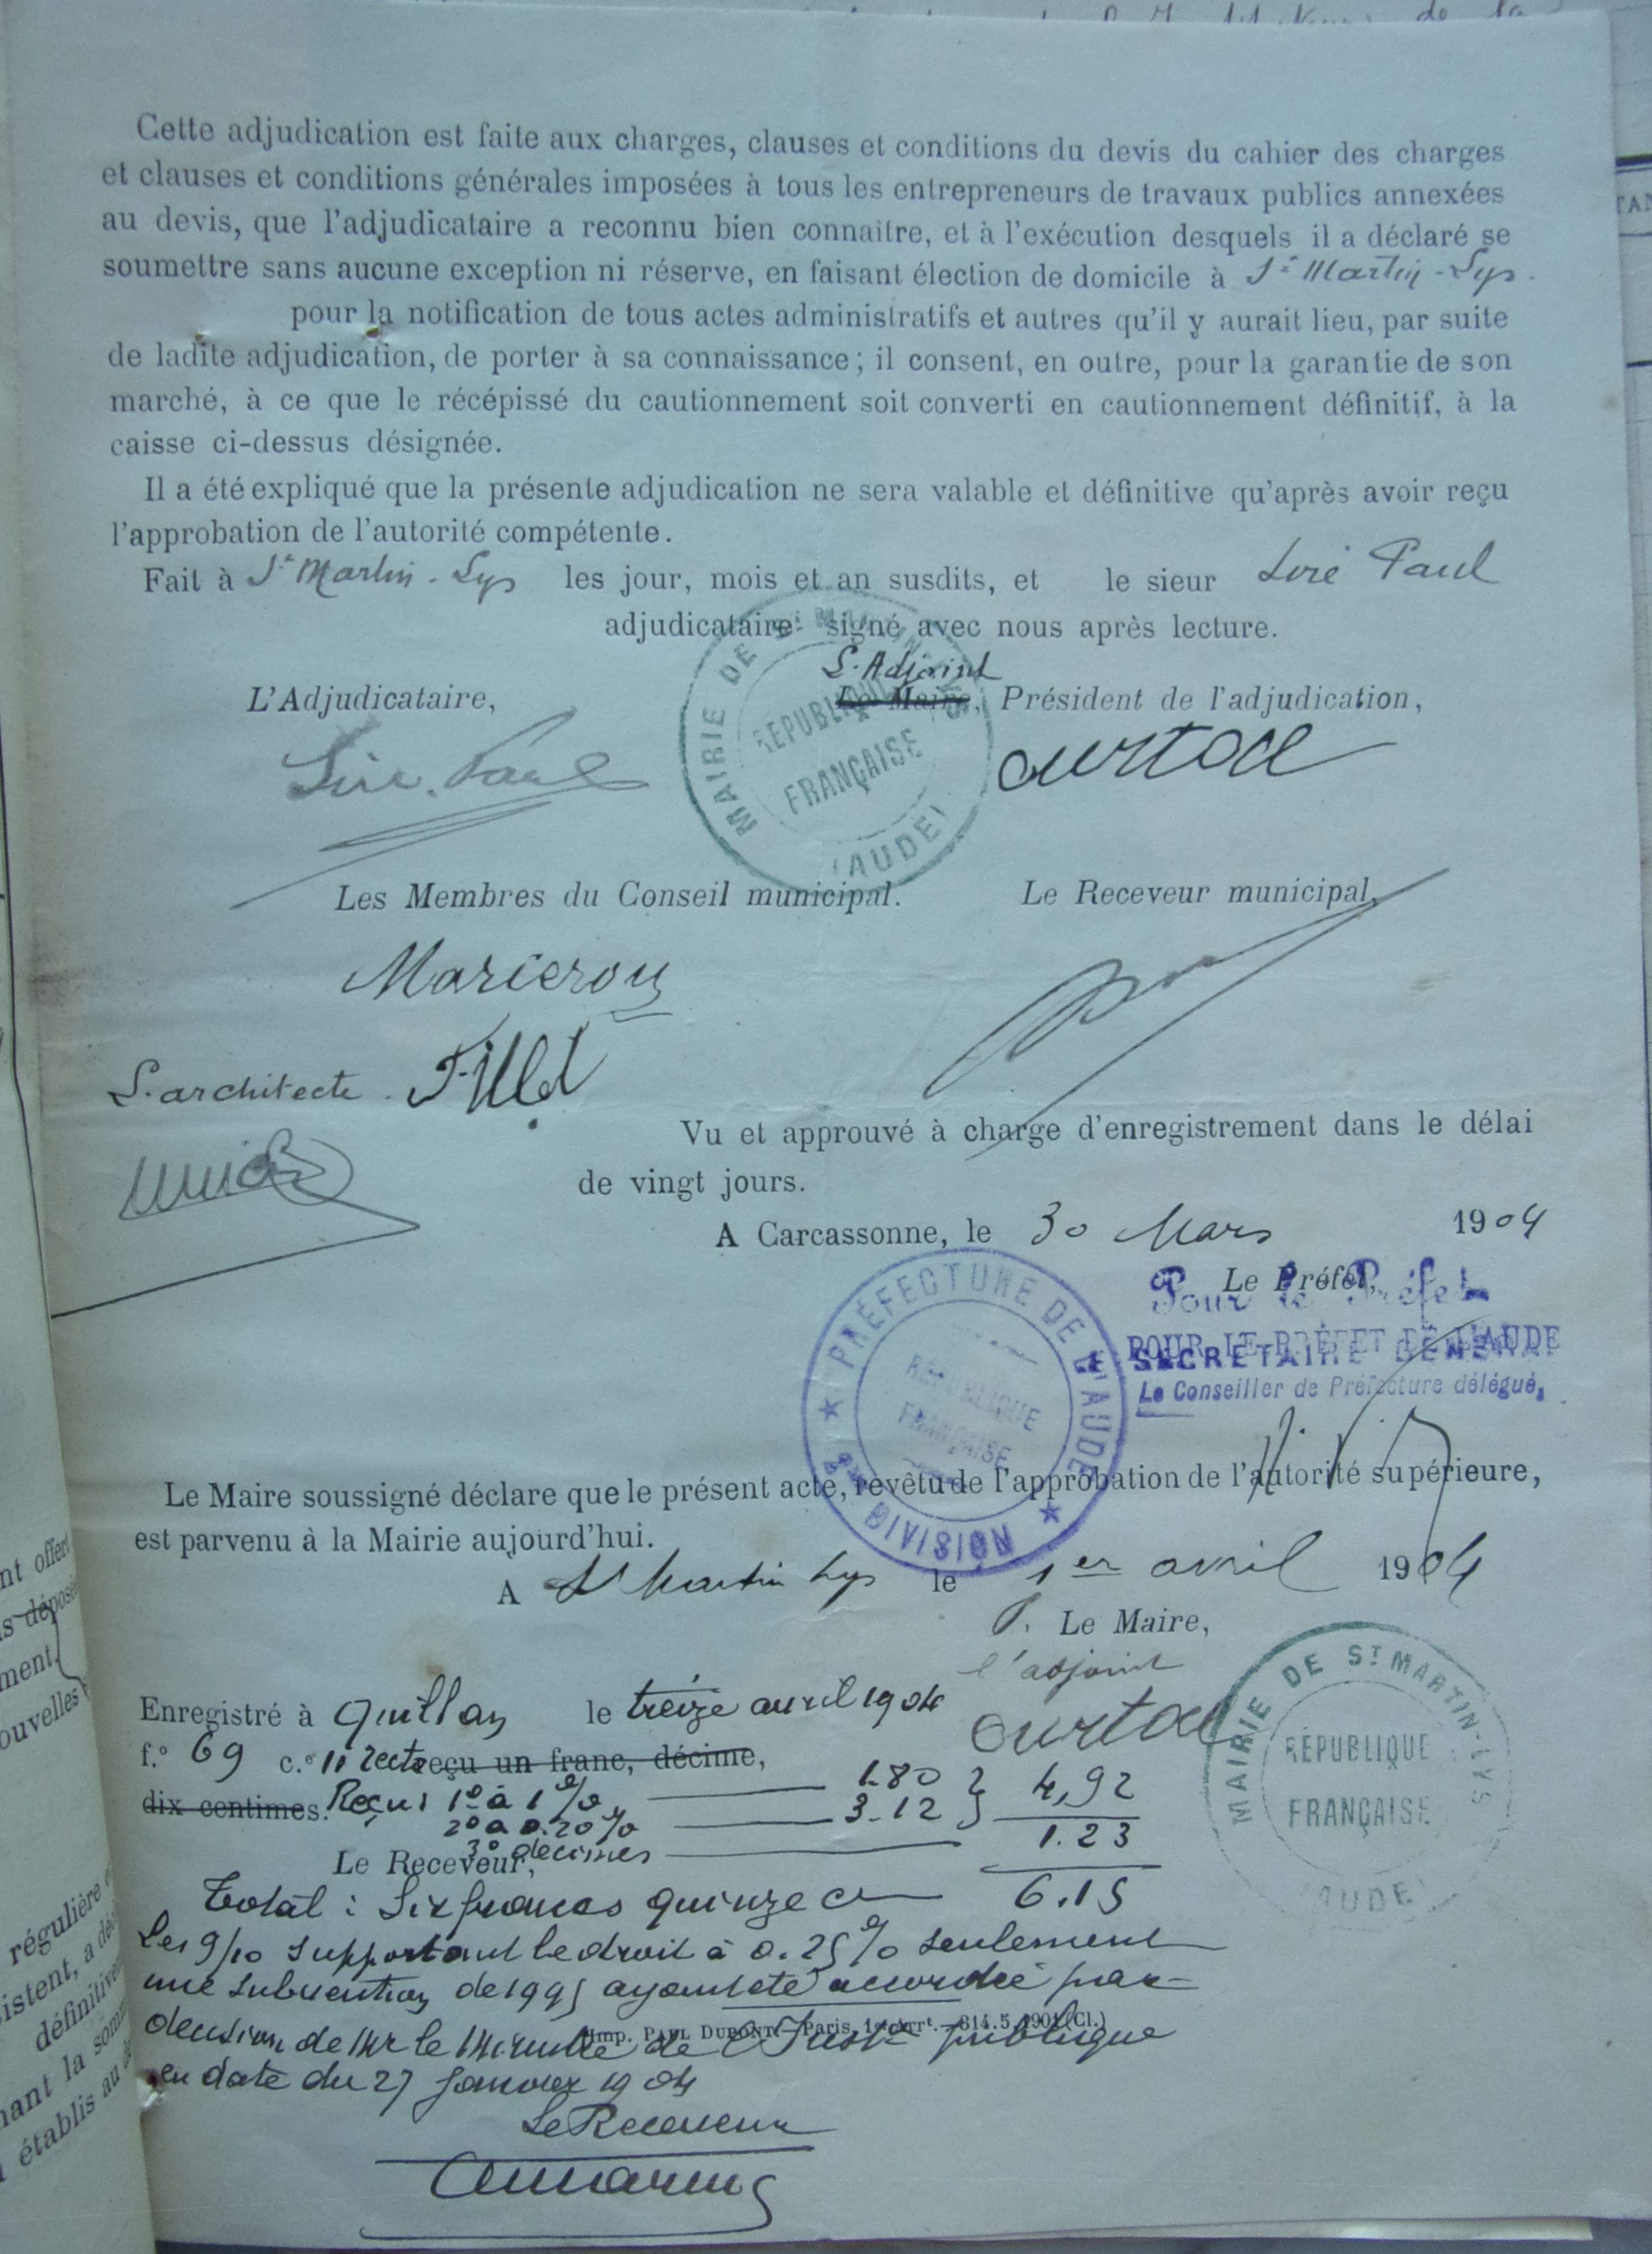 Cette adjudication est faite aux charges, clauses et conditions du devis du cahier des charges
et clauses et conditions générales imposées à tous les entrepreneurs de travaux publics annexées
au devis, que l'adjudicataire a reconnu bien connaitre, et à l'exécution desquels il a déclaré se
soumettre sans aucune exception ni réserve, en faisant élection de domicile à St Martin-Lys.
pour la notification de tous actes administratifs et autres qu'il y aurait lieu, par suite
de ladite adjudication, de porter à sa connaissance; il consent, en outre, pour la garantie de son
marché, à ce que le récépissé du cautionnement soit converti en cautionnement définitif, à la
caisse ci-dessus désignée.
Il a été expliqué que la présente adjudication ne sera valable et définitive qu'après avoir reçu
l'approbation de l'autorité compétente.
Fait à St Martin-Lys les jour, mois et an susdits, et le sieur Siré Paul
adjudicataire signé avec nous après lecture.
L'Adjoint
L'Adjudicataire, Le Maire, Président de l'adjudication,
Siré Paul
MAIRIE DE ST MARTIN-LYS
RÉPUBLIQUE
FRANÇAISE
(AUDE)
Les Membres du Conseil municipal. Le Receveur municipal,
L'architecte.
Vu et approuvé à charge d'enregistrement dans le délai
de vingt jours.
A Carcassonne, le 30 Mars 1904
Le Préfet,
Pour le Préfet
POUR LE PRÉFET DE L'AUDE
SECRÉTAIRE GÉNÉRAL
Le Conseiller de Préfecture délégué,
PRÉFECTURE DE L'AUDE
RÉPUBLIQUE
FRANÇAISE
DIVISION
Le Maire soussigné déclare que le présent acte, revêtu de l'approbation de l'autorité supérieure,
est parvenu à la Mairie aujourd'hui.
A St Martin Lys le 1er avril 1904
P. Le Maire,
l'adjoint
MAIRIE DE ST MARTIN-LYS
RÉPUBLIQUE
FRANÇAISE
(AUDE)
Enregistré à Quillan le treize avril 1904
f.º 69 c.e 11 recto eçu un franc, décime,
dix centimes. Reçu: 1º à 1 % 1.80 } 4,92
2º à 0.20 % 3.12
3º décimes 1.23
Le Receveur,
Total : Six francs quinze c 6.15
Les 9/10 supportant le droit à 0.25 % seulement
une subvention de 1995 ayant été accordée par
décision de Mr le Ministre de l'Instr publique
Imp. PAUL DUPONT. — Paris, 1er Arrt. — 314.5.1901 (Cl.)
en date du 27 Janvier 1904
Le Receveur